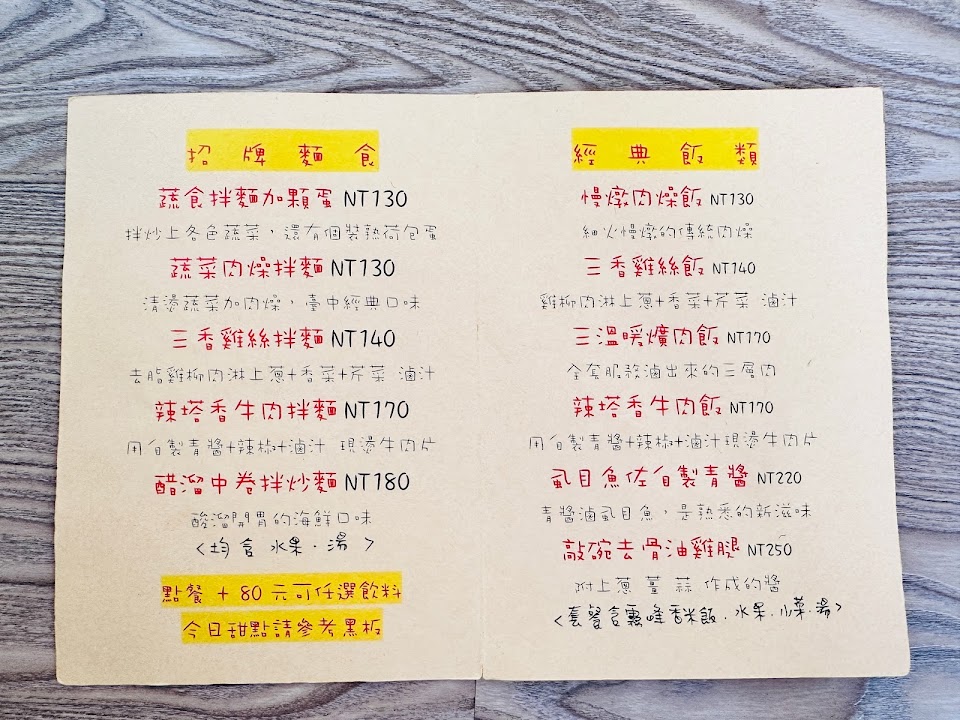 招牌麵食
蔬食拌麵加顆蛋 NT130
拌炒上各色蔬菜，還有個裝熟荷包蛋
蔬菜肉燥拌麵 NT130
清燙蔬菜加肉燥，臺中經典口味
三香雞絲拌麵 NT140
去脂雞柳肉淋上蔥+香菜+芹菜 滷汁
辣塔香牛肉拌麵 NT170
用自製青醬+辣椒+滷汁 現燙牛肉片
醋溜中卷拌炒麵 NT180
酸溜開胃的海鮮口味
<均含 水果.湯 >
點餐 + 80 元可任選飲料
今日甜點請參考黑板
經典飯類
慢燉肉燥飯 NT130
細火慢燉的傳統肉燥
三香雞絲飯 NT140
雞柳肉淋上蔥+香菜+芹菜 滷汁
三溫暖爌肉飯 NT170
全套服務滷出來的三層肉
辣塔香牛肉飯 NT170
用自製青醬+辣椒+滷汁現燙牛肉片
虱目魚佐自製青醬 NT220
青醬滷虱目魚，是熟悉的新滋味
敲碗去骨油雞腿 NT250
附上蔥 薑 蒜 作成的醬
<套餐含霧峰香米飯.水果.小菜.湯>